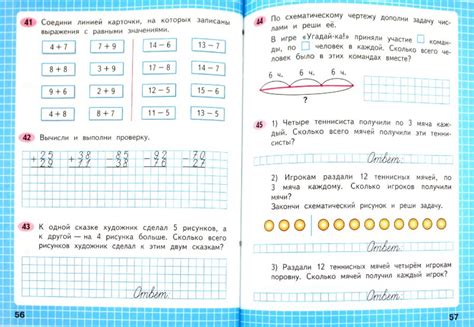 41 Соедини линией карточки, на которых записаны
выражения с равными значениями.
4 + 7 7 + 9 14 − 6 13 − 7
8 + 8 3 + 9 15 − 8 13 − 4
9 + 6 6 + 5 11 − 2 15 − 6
9 + 3 8 + 7 12 − 6 13 − 5
42 Вычисли и выполни проверку.
43 К одной сказке художник сделал 5 рисунков, а
к другой — на 4 рисунка больше. Сколько всего
рисунков художник сделал к этим двум сказкам?
Ответ:
56
44 По схематическому чертежу дополни задачу числами
и реши её.
В игре «Угадай-ка!» приняли участие команды,
по человек в каждой. Сколько всего человек
было в этих командах вместе?
6 ч. 6 ч. 6 ч.
?
45 1) Четыре теннисиста получили по 3 мяча каждый.
Сколько всего мячей получили эти теннисисты?
Ответ:
2) Игрокам раздали 12 теннисных мячей, по
3 мяча каждому. Сколько игроков получили
мячи?
Закончи схематический рисунок и реши задачу.
Ответ:
3) Раздали 12 теннисных мячей четырём игрокам
поровну. Сколько мячей получил каждый игрок?
Ответ:
57